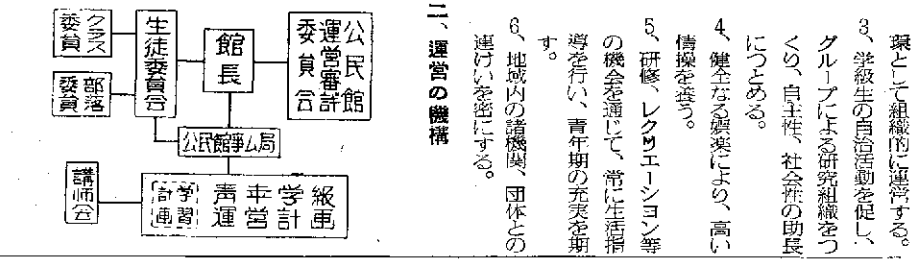 環として組織的に運営する。
3、学級生の自治活動を促し、
グループによる研究組織をつ
くり、自主性、社会性の助長
につとめる。
4、健全なる娯楽により、高い
情操を養う。
5、研修、レクリエーション等
の機会を通じて、常に生活指
導を行い、青年期の充実を期
す。
6、地域内の諸機関、団体との
連けいを密にする。
二、運営の機構
公民館
運営審計
委員会
館長
生徒委員会
クラス
委員
部落
委員
公民館事ム局
青年学級
運営計画
学習
計画
講師会